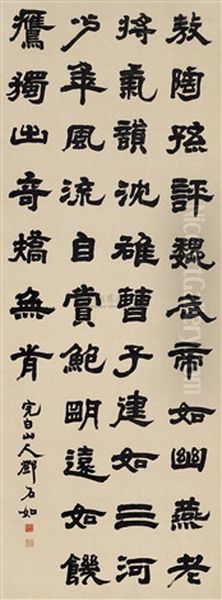 敖陶孫評魏武帝如幽燕老
將氣韻沈雄曹子建如三河
少年風流自賞鮑明遠如饑
鷹獨出奇矯無前
完白山人鄧石如